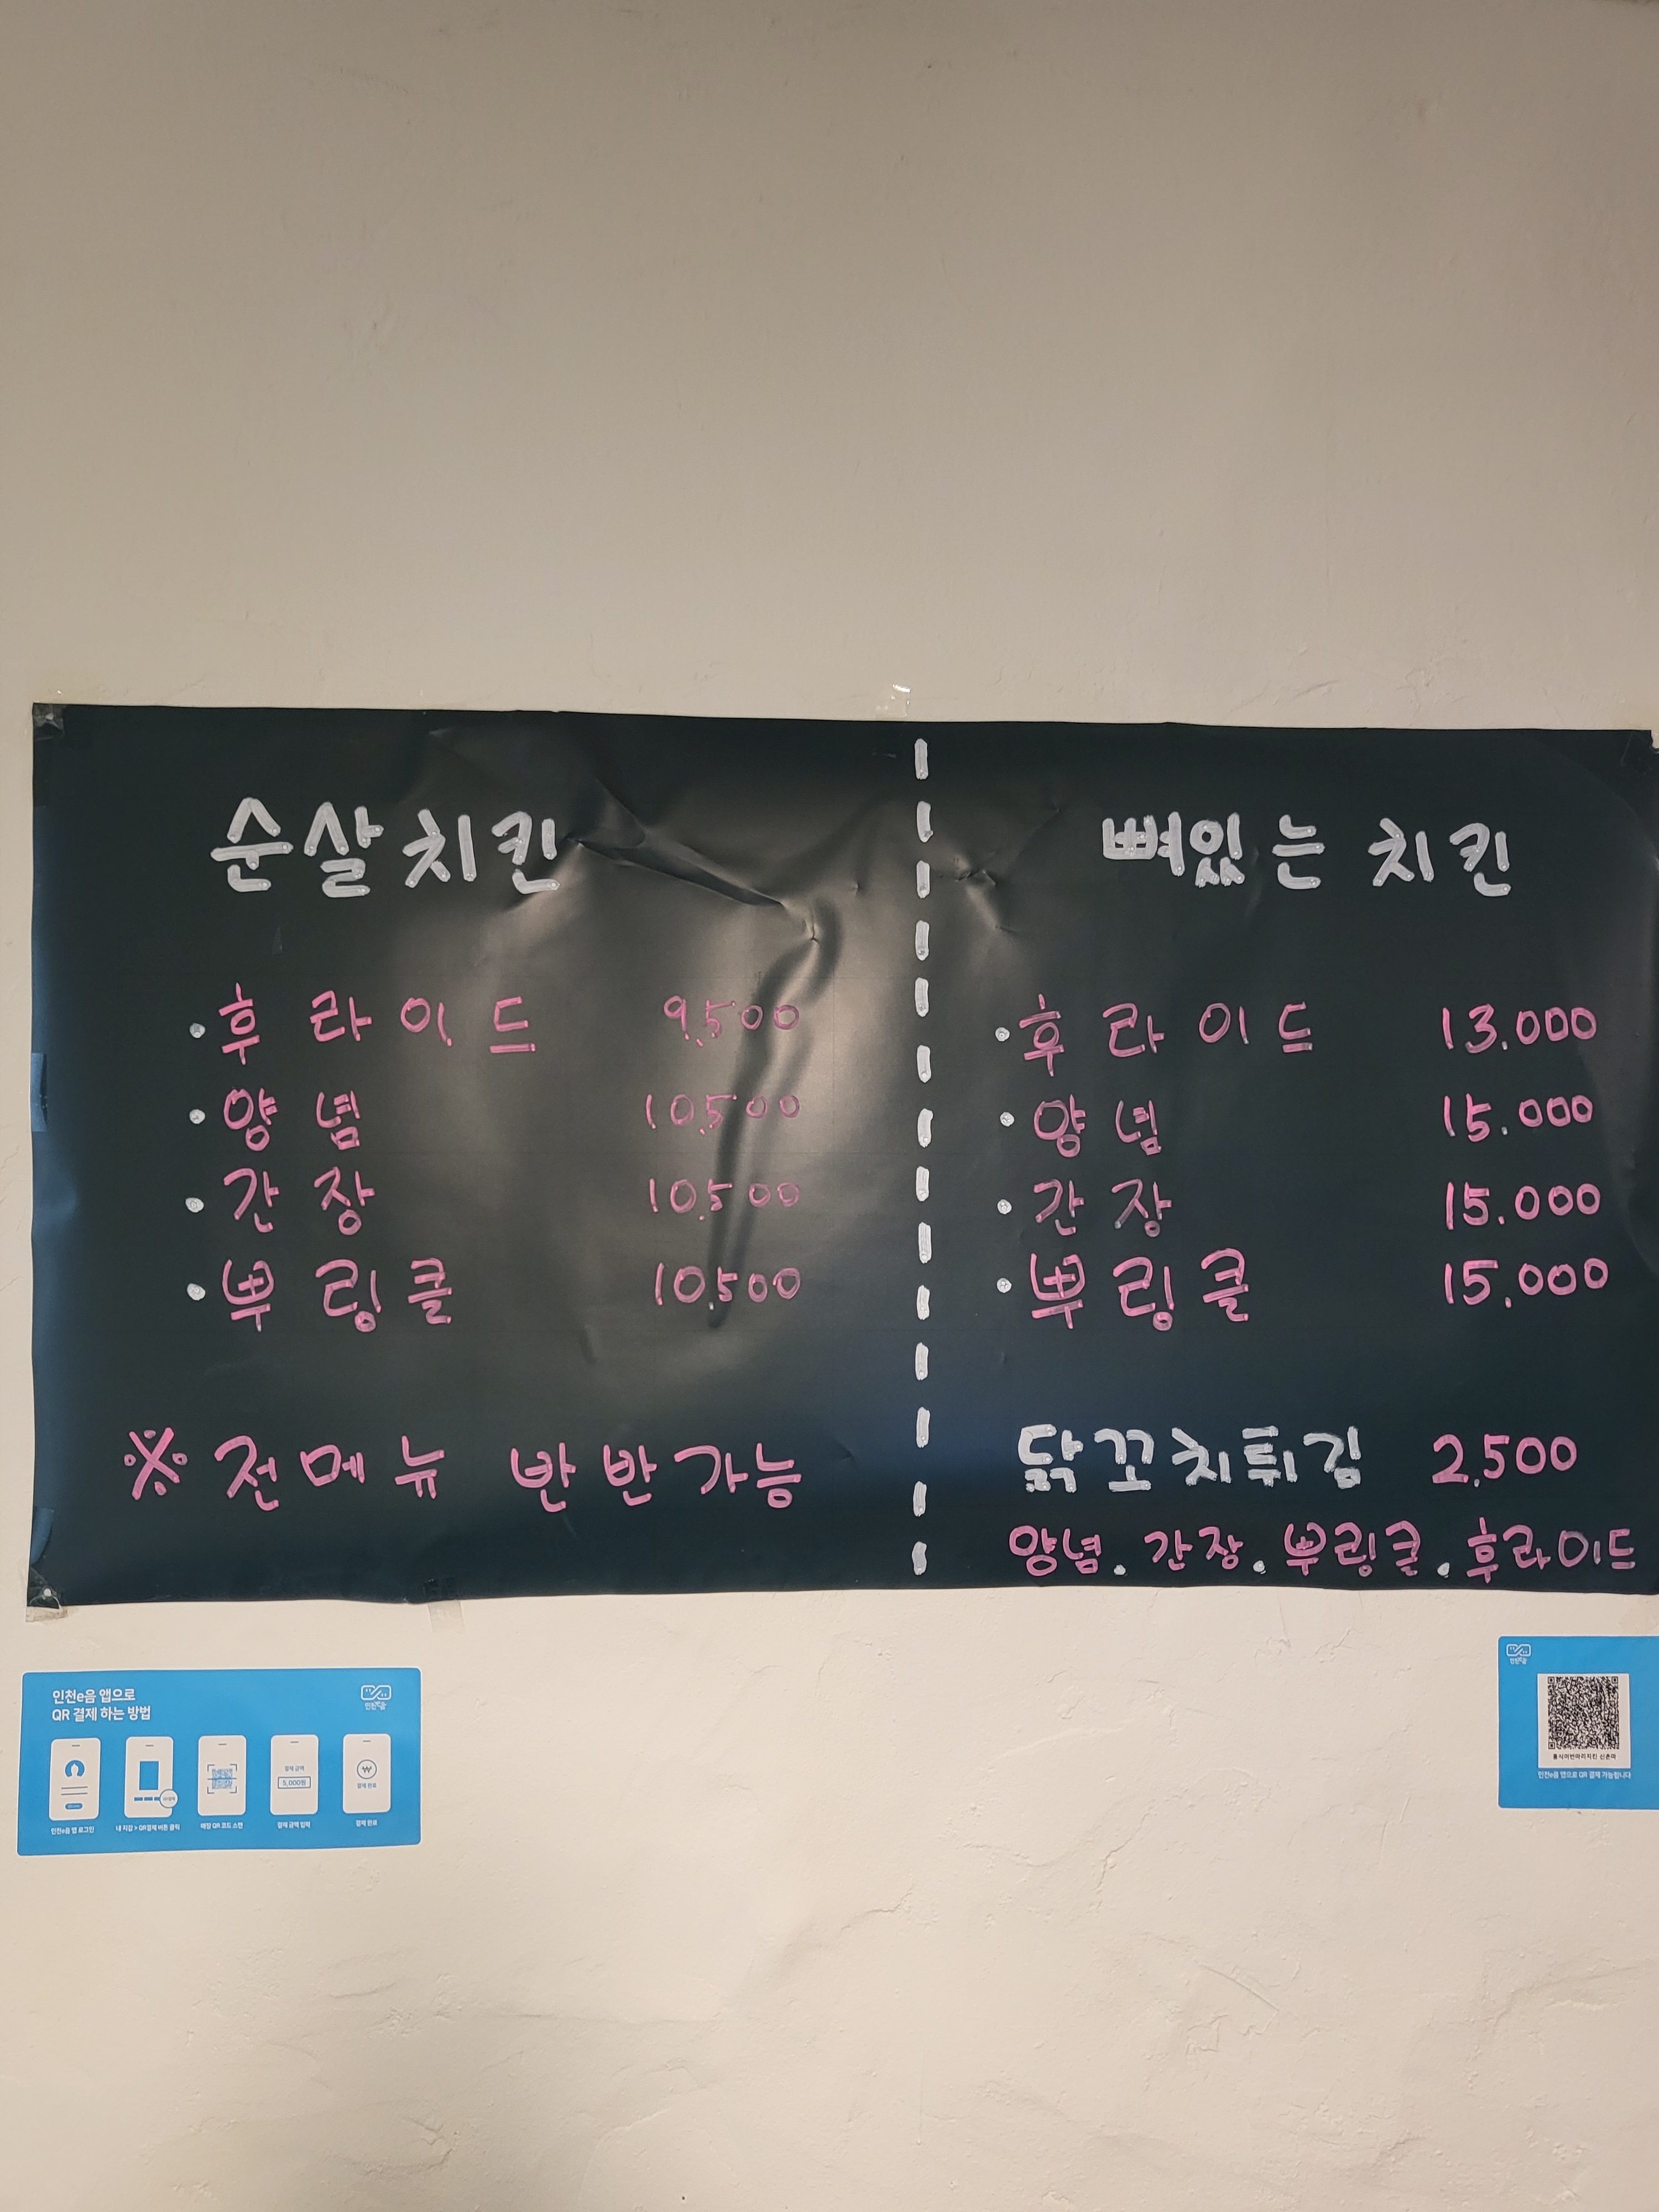 순살치킨
• 후라이드 9,500
• 양념 10,500
• 간장 10,500
• 뿌링클 10,500
※ 전메뉴 반반가능
뼈있는 치킨
• 후라이드 13.000
• 양념 15.000
• 간장 15.000
• 뿌링클 15,000
닭꼬치튀김 2,500
양념. 간장. 뿌링클. 후라이드
인천e음 앱으로
QR 결제 하는 방법
인천e음
결제 금액
5,000원
결제 완료
인천e음 앱 로그인
내 지갑 > QR결제 버튼 클릭
매장 QR 코드 스캔
결제 금액 입력
결제 완료
인천e음
인천e음 앱으로 QR 결제 가능합니다